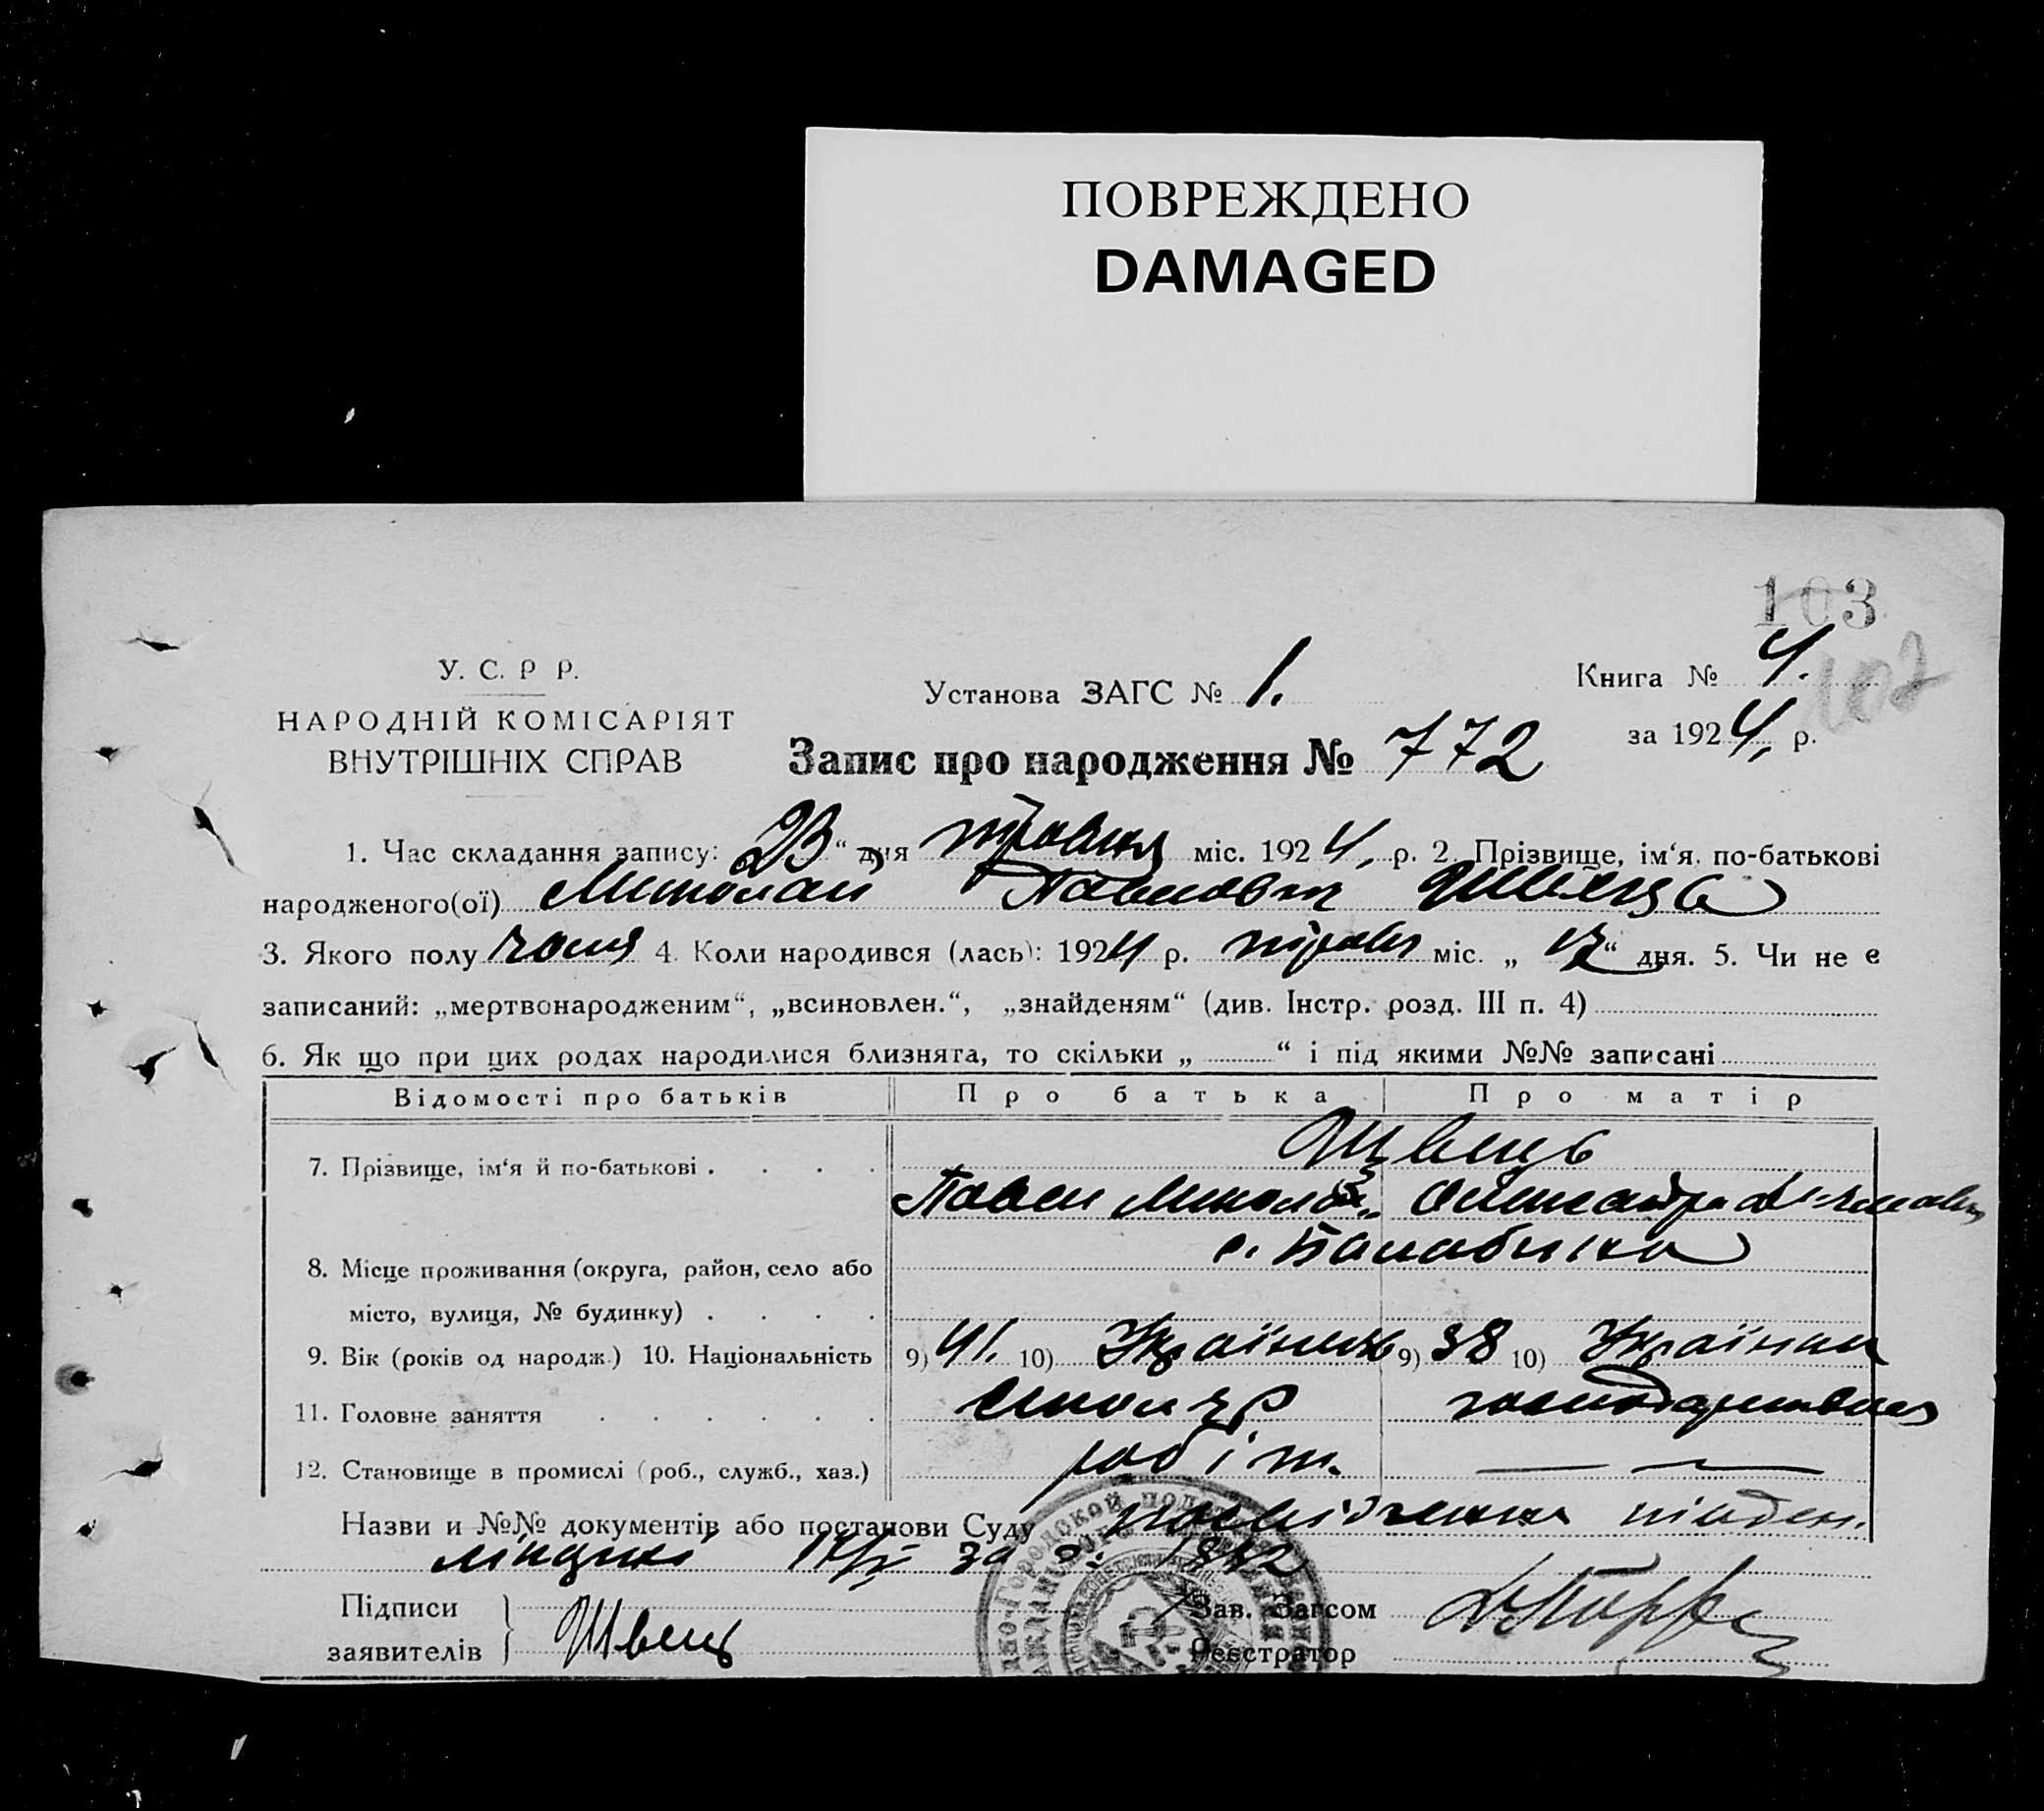 ПОВРЕЖДЕНО
DAMAGED
103
102
У. С. Р Р.
НАРОДНІЙ КОМІСАРІЯТ
ВНУТРІШНІХ СПРАВ
Установа ЗАГС № 1.
Книга № 4.
за 1924, р.
Запис про народження № 772
1. Час складання запису: 23 “ дня травня міс. 1924, р. 2. Прізвище, ім‘я, по-батькові
народженого(ої) Миколай Павлович Швець
3. Якого полу чолов 4. Коли народився (лась): 1924 р. травн міс. „ 17 “ дня. 5. Чи не є
записаний: „мертвонародженим“, „всиновлен.“, „знайденям“ (див. Інстр. розд. III п. 4)
6. Як що при цих родах народилися близнята, то скільки „ “ і під якими №№ записані
Відомості про батьків Про батька Про матір
7. Прізвище, ім‘я й по-батькові . . . . Швець
Павел Микола Олександра
8. Місце проживання (округа, район, село або с. Балабино
місто, вулиця, № будинку) . . . .
9. Вік (років од народж.) 10. Національність 9) 41. 10) Українець 9) 38 10) Українка
11. Головне заняття . . . . . . столяр
12. Становище в промислі (роб., служб., хаз.) робіт.
Назви и №№ документів або постанови Суду посвідчення
за 1842
Підписи
заявителів
Швець
Зав. Загсом
Реєстратор